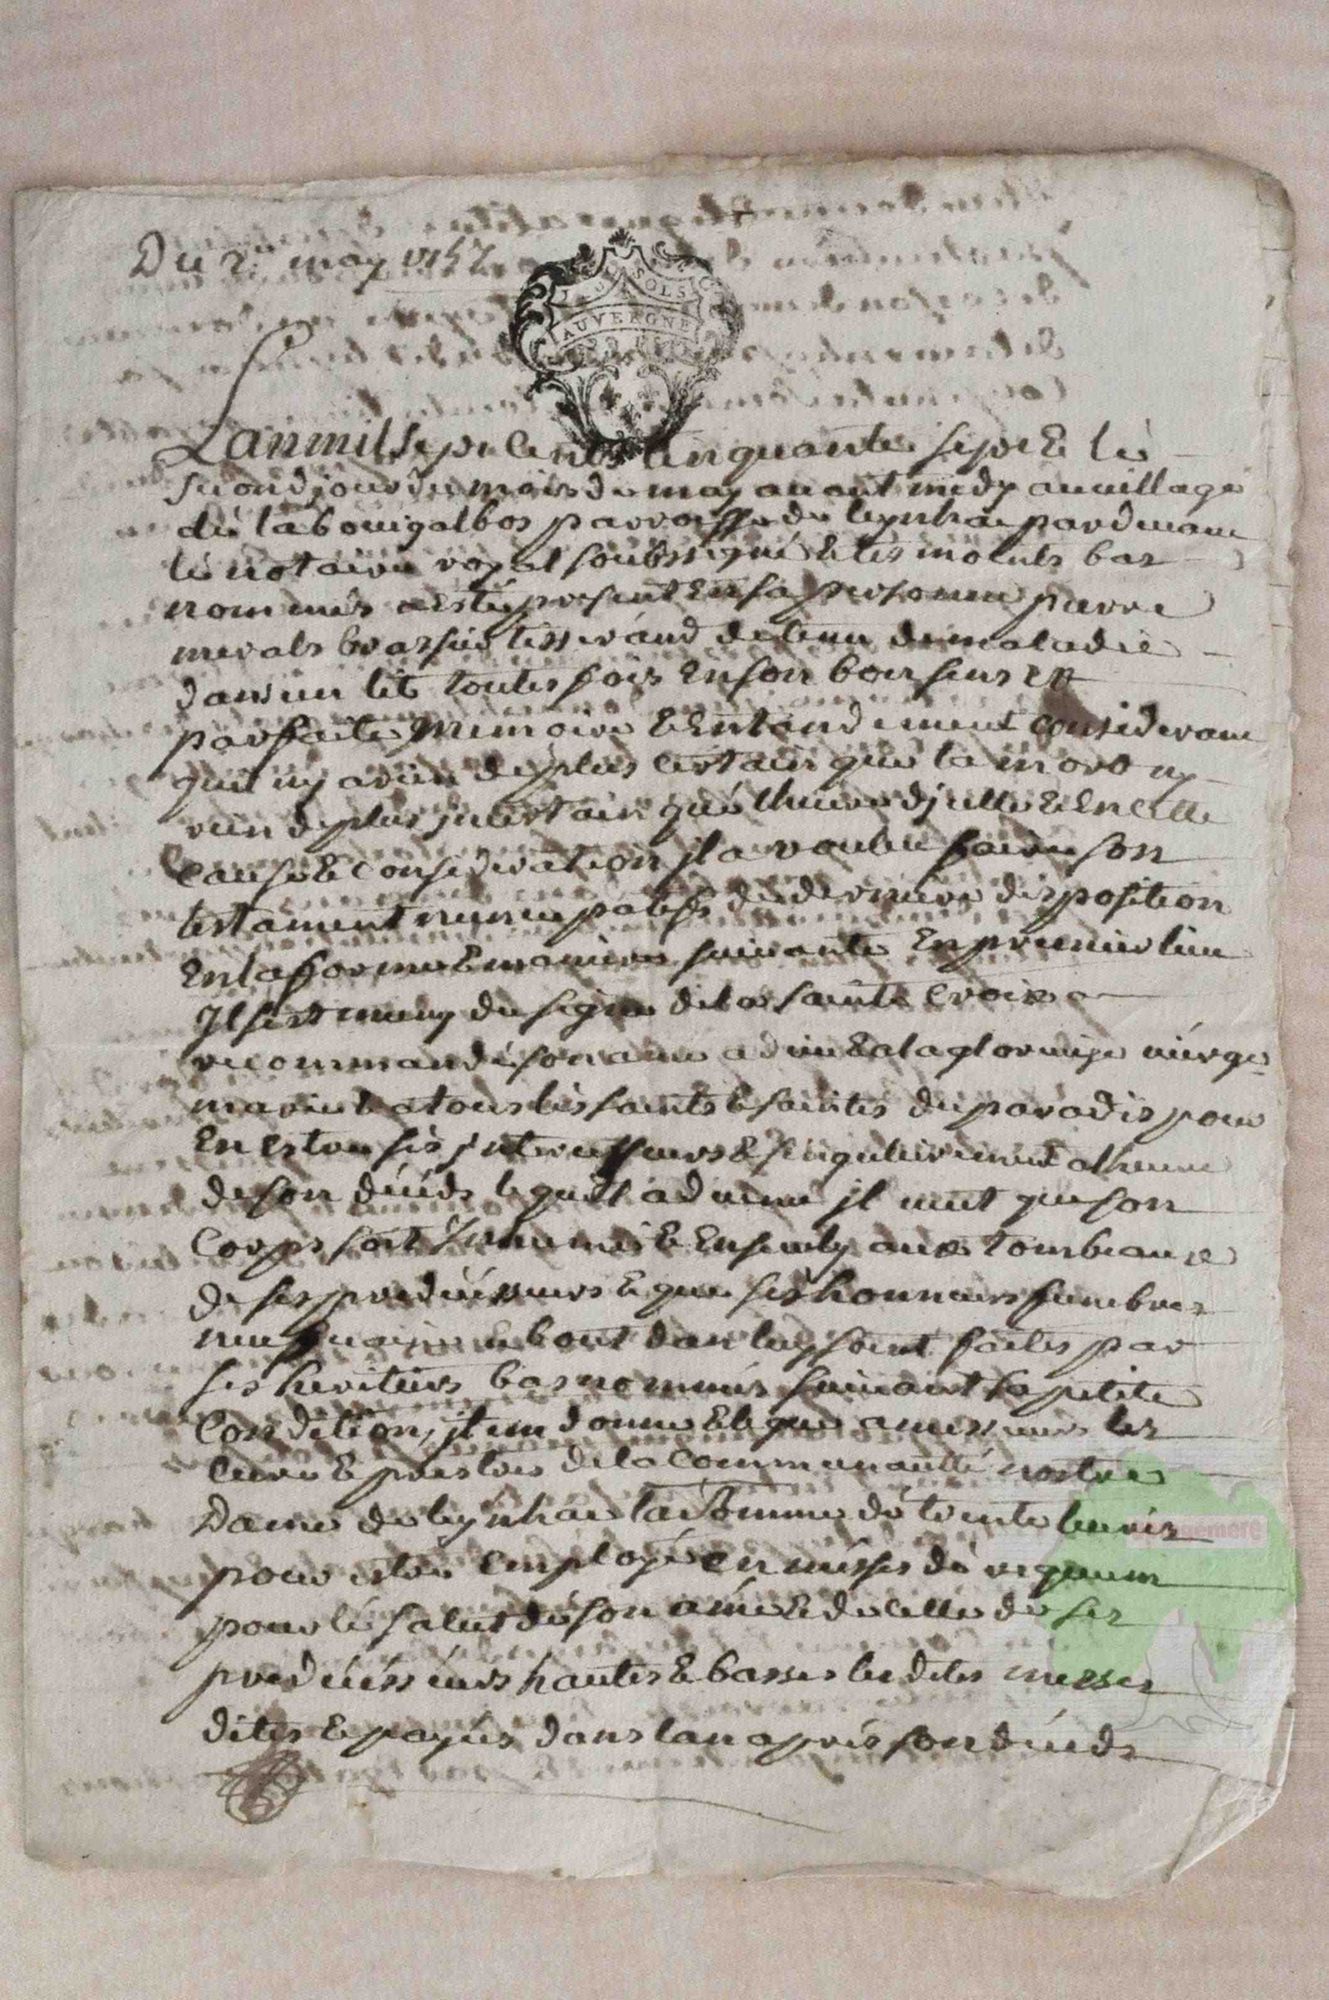 Du 2e may 1757
SOLS
AUVERGNE
Lan mil sept cents cinquante sept & le
second jour du mois de may avant midy au village
de labouigalbos parroisse de leynhac pardevant
le notaire royal soubssigné & tesmoints bas
nommés a esté present en sa personne pierre
merals brassier tisserand detenu de maladie
dans un lit toutes fois en son bon sens et
parfaite memoire & entandement considerant
quil ny a rien de plus certain que la mort ny
rien de plus jncertain que lheure djcelle & en celle
cause & consideration jl a voulu faire son
testament nuncupatif & de derniere disposition
en la forme & maniere suivante En premier lieu
Jl sest muny du signe de la sainte Croix
recommandé son ame a dieu & a la glorieuse vierge
marie & a tous les saints & saintes du paradis pour
en estre ses jntercesseurs & singulierement a lheure
de son décéds lequel advenu jl veut que son
Corps soit jnhumé & ensevely aux tombeaux
de ses predécésseurs & que ses honneurs funebres
neufvaine & bout dan luy soint faites par
ses heritiers bas nommés suivant sa petite
Condition, jtem donne & legue a messieurs les
curé & prestres de la communauté nostre
Dame de leynhac la somme de trente livres
pour estre employée en messes de requiem
pour le salut de son ame & de celles de ses
predécésseurs hautes & basses les dites messes
dites & payées dans lan aprés son décéds